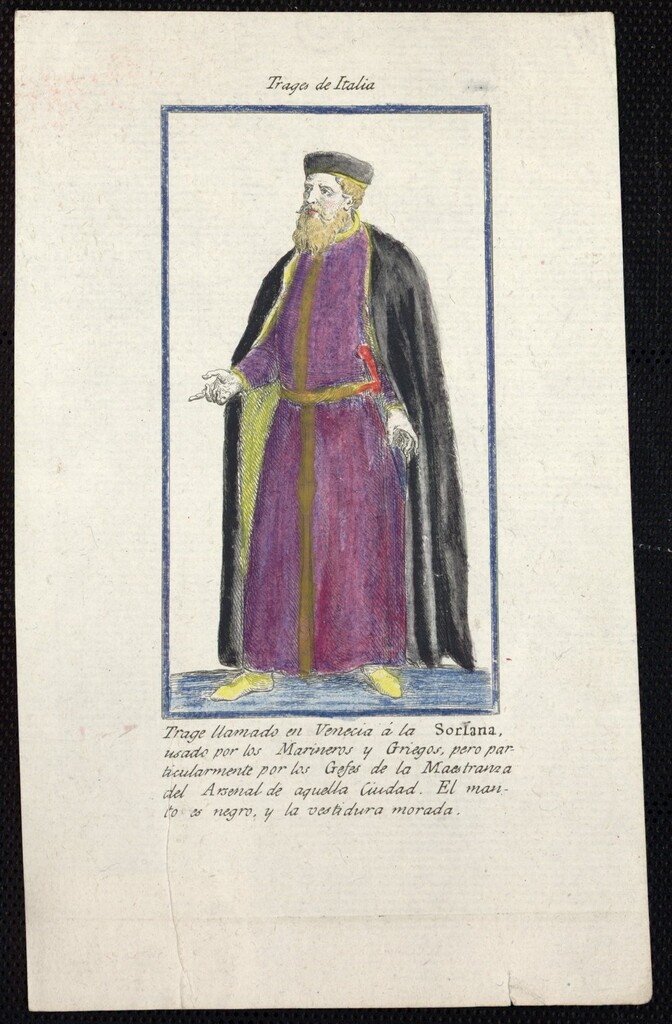 Trages de Italia
Trage llamado en Venecia á la Soriana,
usado por los Marineros y Griegos, pero par-
ticularmente por los Gefes de la Maestranza
del Arsenal de aquella Ciudad. El man-
to es negro, y la vestidura morada.